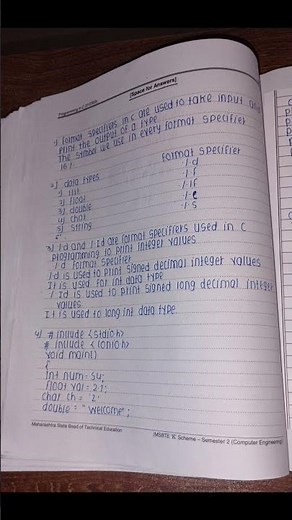 Programming in C (312303)
[Space for Answers]
1) Format specifiers in C are used to take input and
print the output of a type
The symbol we use in every format specifier
is %
2) data types format specifier
1) int %d
2) float %f
3) double %lf
4) char %c
5) string %s
3) %d and %ld are format specifiers used in C
programming to print integer values
%d format specifier
%d is used to print signed decimal integer values
It is used for int data type
%ld is used to print signed long decimal integer
values
It is used to long int data type
4) # include <stdio.h>
# include <conio.h>
void main()
{
int num = 54;
float val = 2.1;
char ch = '2'
double = "welcome";
Maharashtra State Board of Technical Education
(MSBTE 'K' Scheme – Semester 2 (Computer Engineering)